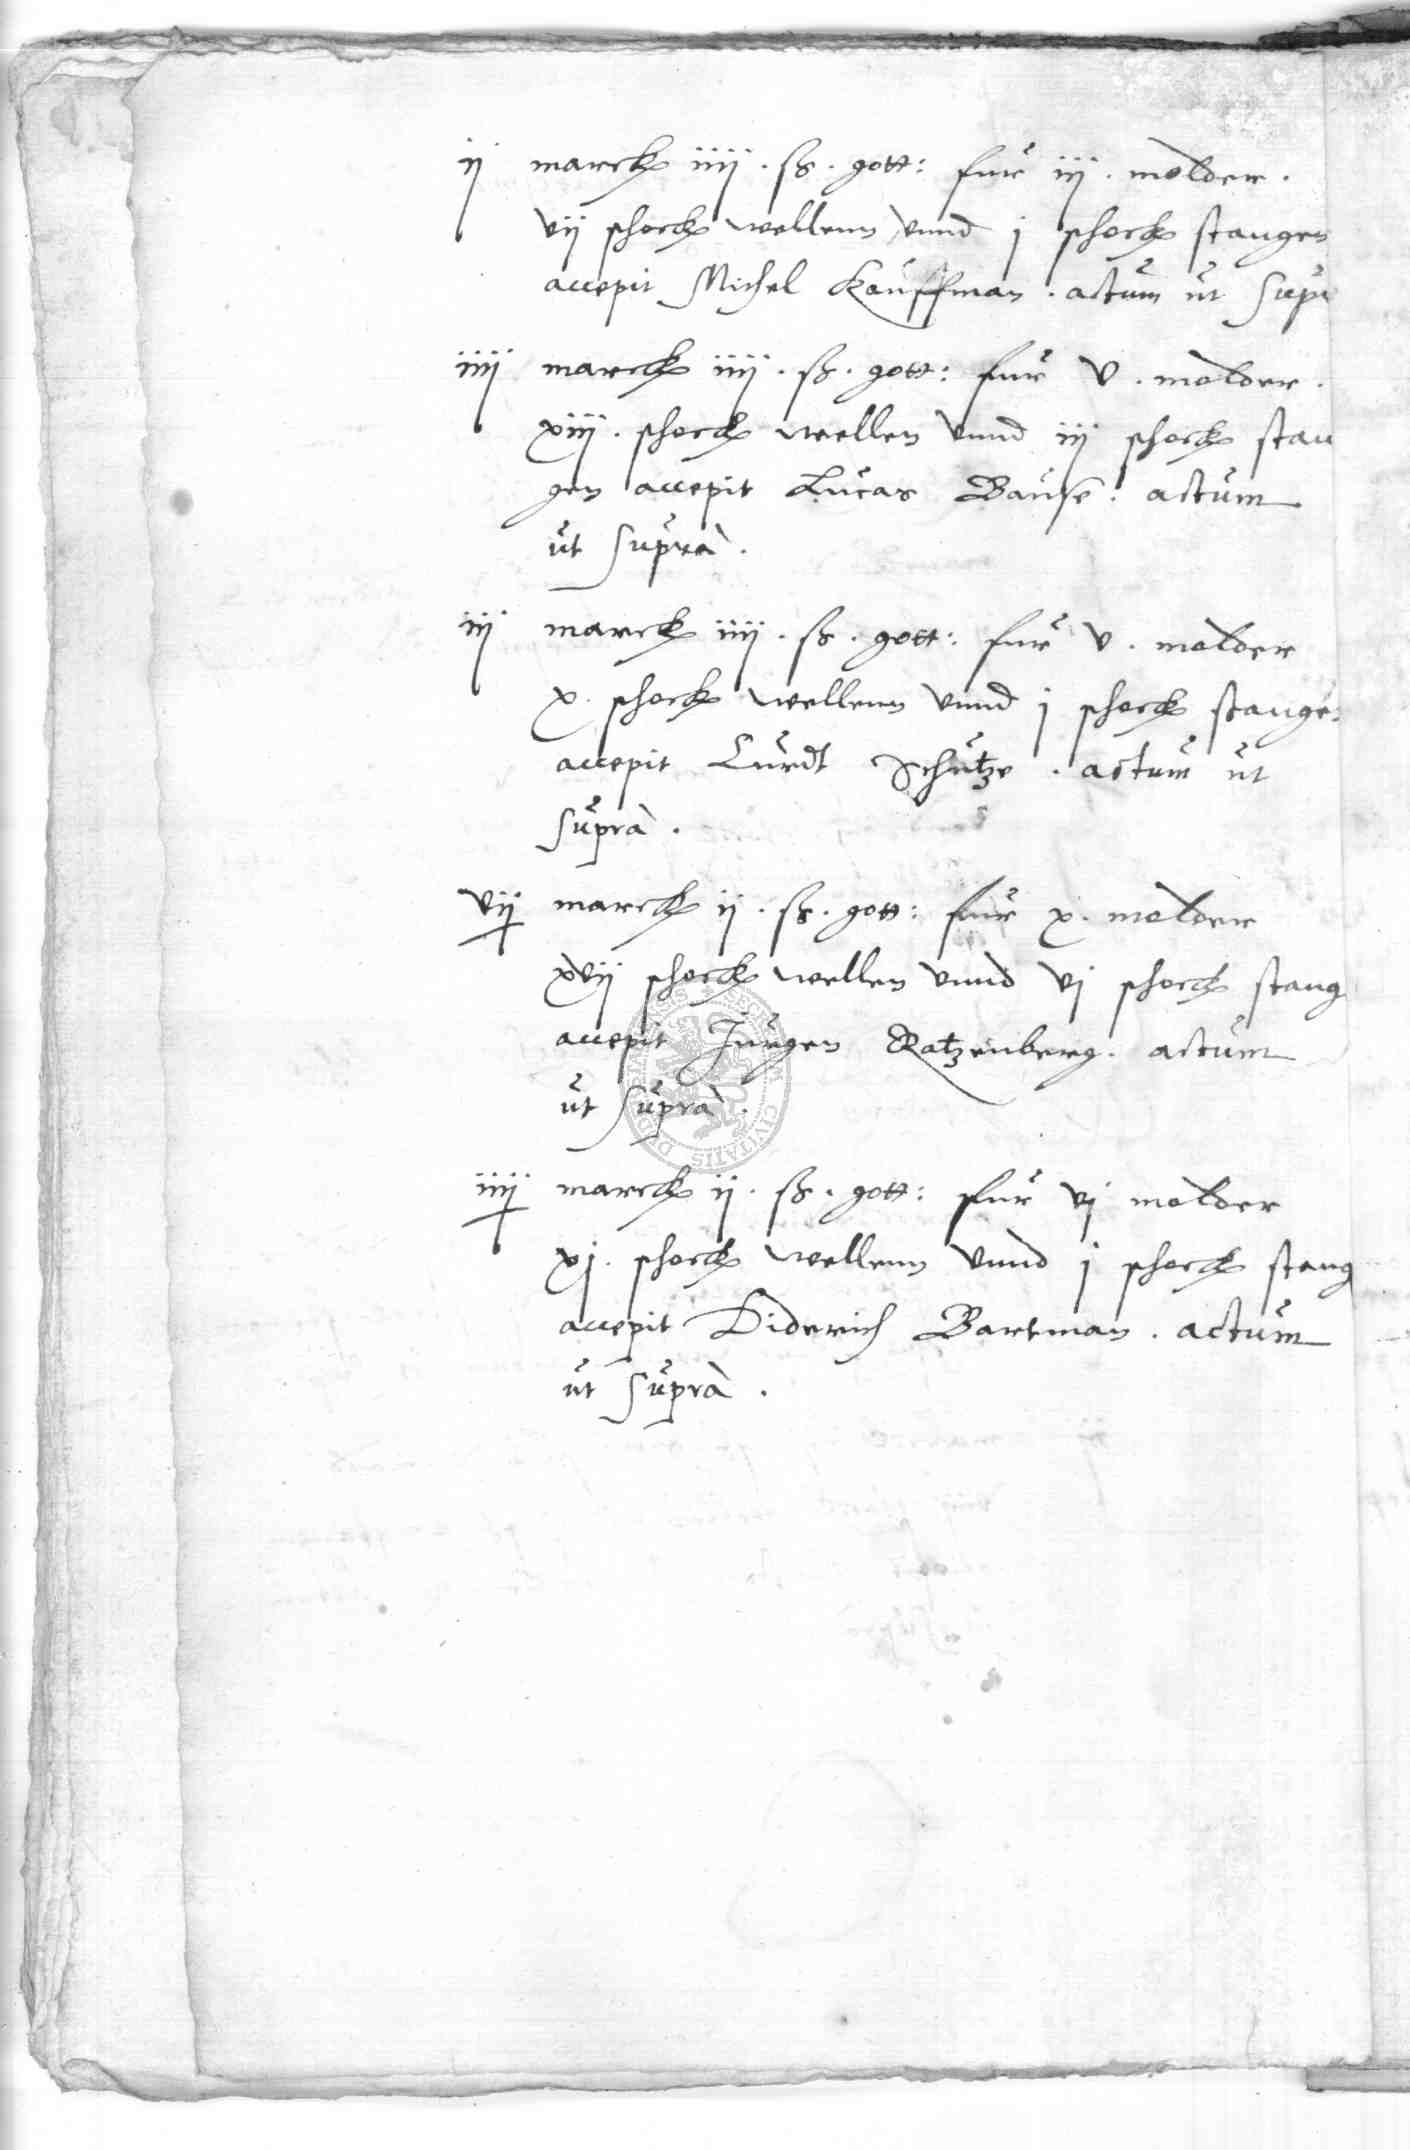 ij marck iiij . ß . gott: fur iij . molder .
vij schock wellenn vnnd j schock stangen
accepit Michel Kauffman . actum ut supr
iiij marck iiij . ß . gott: fur v . molder .
xiij . schock wellen vnnd iij schock stan
gen accepit Lucas Bause . actum
ut supra .
iij marck iiij . ß . gott: fur v . molder
x . schock wellenn vnnd j schock stange:
accepit Curdt Schutze . actum ut
supra .
vij marck ij . ß . gott: fur x . molder
xvij schock wellen vnnd vj schock stang
accepit Jurgen Katzenberg . actum
ut supra .
iiij marck ij . ß . gott: fur vj molder
xj . schock wellenn vnnd j schock stang
accepit Diderich Bartman . actum
ut supra .